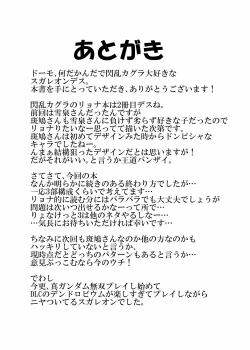 あとがき
ドーモ、何だかんだで閃乱カグラ大好きな
スガレオンデス。
本書を手にとっていただき、ありがとうございます！
閃乱カグラのリョナ本は2冊目デスね。
前回は雪泉さんだったんですが
斑鳩さんも雪泉さんに負けず劣らず好きな子だったので
リョナりたいなーと思ってて描いた次第です。
斑鳩さんは初めてデザインみた時からドンピシャな
キャラでしたねー。
んまぁ結構狙ったデザインだとは思いますが！
だがそれがいい、と言うか王道バンザイ。
さてさて、今回の本
なんか明らかに続きのある終わり方でしたが…
一応3部構成くらいで考えてます…
リョナ的に読む分にはバラバラでも大丈夫でしょうが
問題は次いつ出せるかなーって所でし…
りょなけっと3は他のネタやるしなー…
…気長にお待ちいただければ幸いです…
ちなみに次回も斑鳩さんなのか他の方なのかも
ハッキリしていないと言うか、
現時点だとどっちのパターンもあると言うか…
意見ぶっこむなら今のウチ！
でわし
今更、真ガンダム無双プレイし始めて
DLCのデンドロビウムが楽しすぎてプレイしながら
ニヤついてるスガレオンでした。